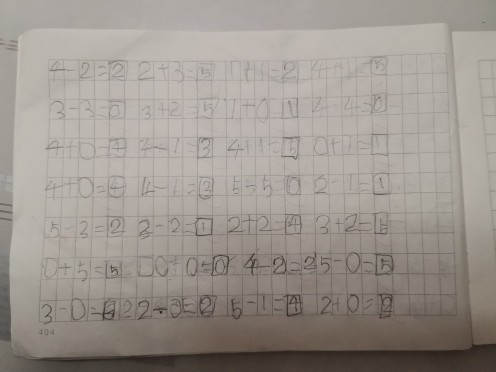 4-2=2 2+3=5 1+1=2 4+1=5
3-3=0 3+2=5 1+0 1 4-4=0
4+0=4 4-1=3 4+1=5 0+1=1
4+0=4 4-1=3 5-5 0 2-1=1
5-3=2 2-2=1 2+2=4 3+2=5
0+5=5 0+0=0 4-2=2 5-0=5
3-0= 2-0=2 5-1=4 2+0=2
404